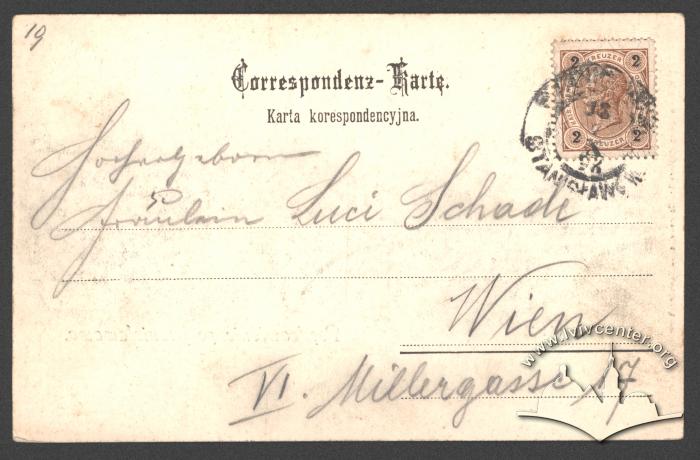 19
KREUZER
2 2
2 2
KREUZER
STANISŁAWÓW
Correspondenz-Karte.
Karta korespondencyjna.
Hochwohlgeboren
Fräulein Luci Schade
Wien
VI. Millergasse 17
www.lvivcenter.org